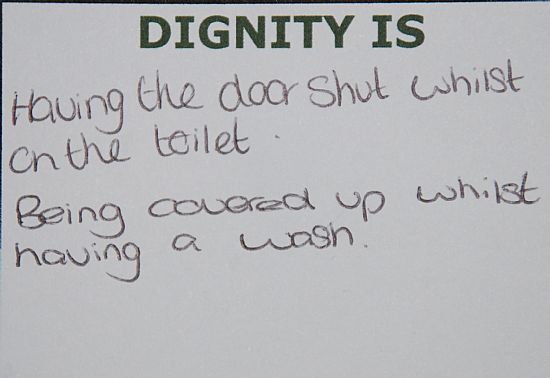 DIGNITY IS
Having the door shut whilst
on the toilet.
Being covered up whilst
having a wash.